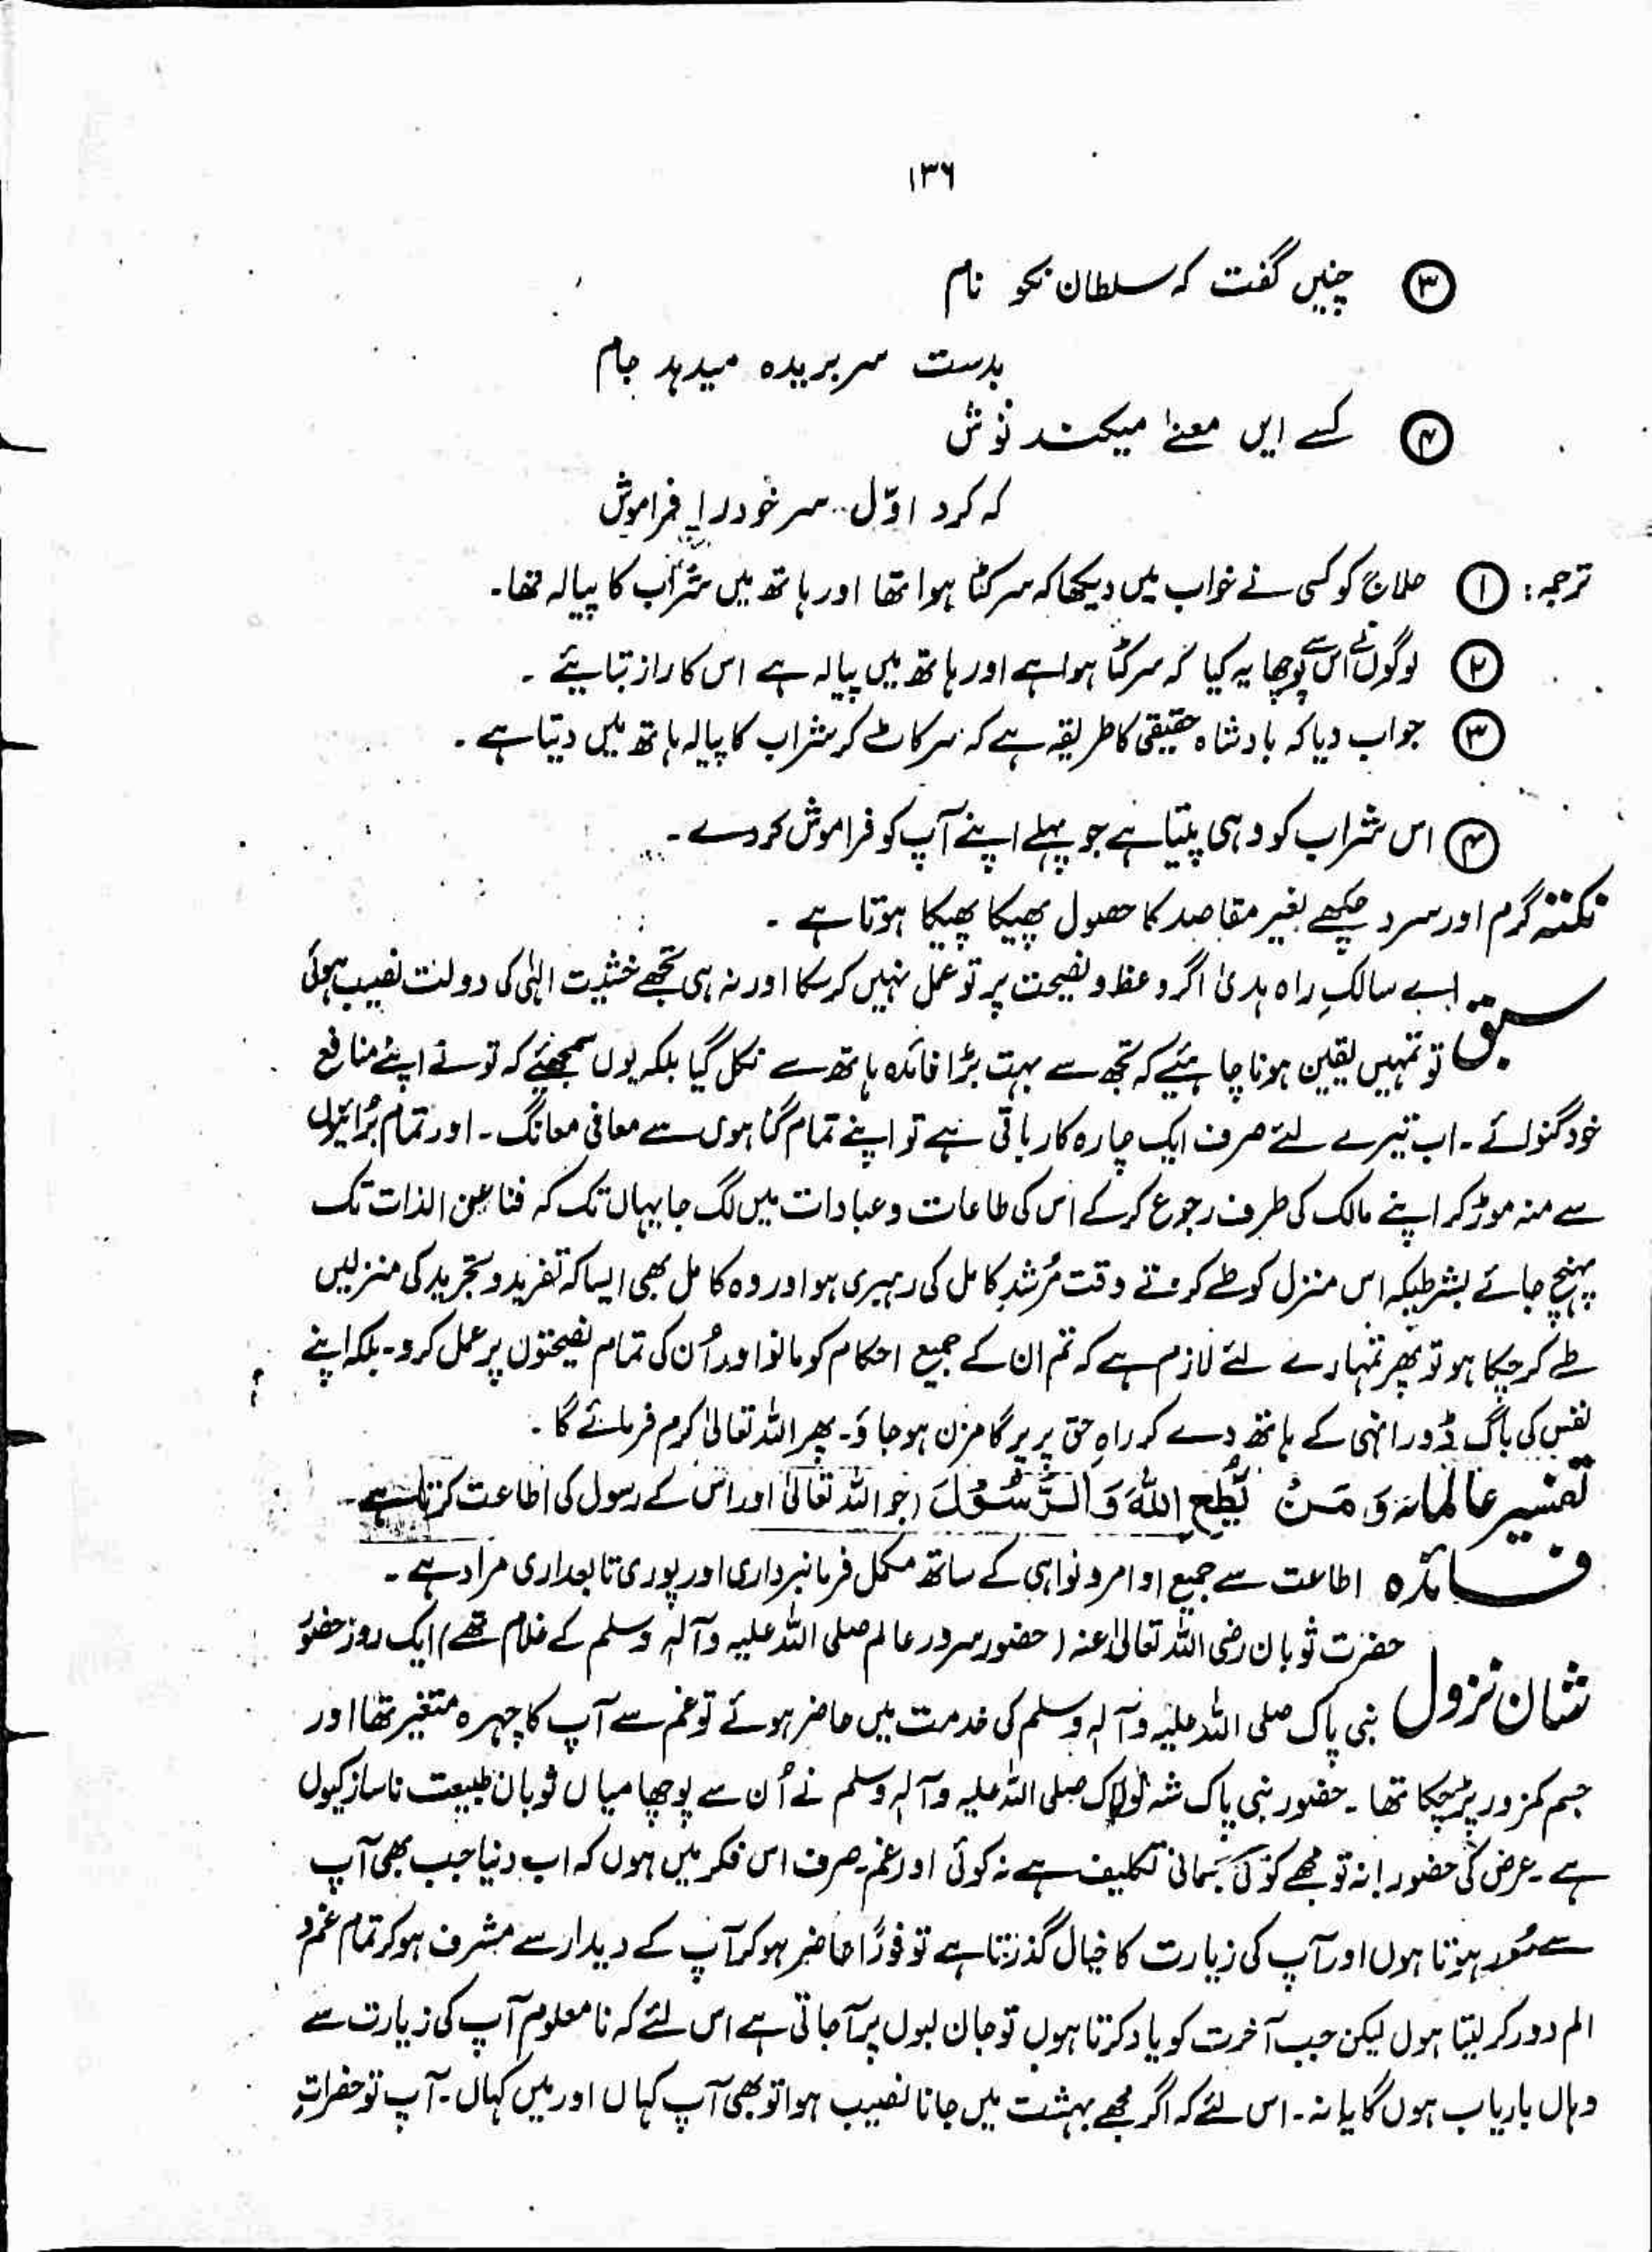 ۱۳۶
③ چنیں گفت کہ سلطان نکو نام
بدست سر بریدہ میدہد جام
④ کسے ایں معنےٰ میکند نوش
کہ کرد اوّل سر خود را فراموش
ترجمہ: ① حلاج کو کسی نے خواب میں دیکھا کہ سر کٹا ہوا تھا اور ہاتھ میں شراب کا پیالہ تھا۔
② لوگوں نے اس سے پوچھا یہ کیا کہ سر کٹا ہوا ہے اور ہاتھ میں پیالہ ہے اس کا راز بتایئے ۔
③ جواب دیا کہ بادشاہ حقیقی کا طریقہ ہے کہ سر کاٹ کر شراب کا پیالہ ہاتھ میں دیتا ہے ۔
④ اس شراب کو وہی پیتا ہے جو پہلے اپنے آپ کو فراموش کر دے ۔
نکتہ گرم اور سرد چکھے بغیر مقاصد کا حصول پھیکا پھیکا ہوتا ہے ۔
سبق اے سالکِ راہ ہدیٰ اگر وعظ و نصیحت پر تو عمل نہیں کر سکا اور نہ ہی تجھے خشیت الہٰی کی دولت نصیب ہوئی
تو تمہیں یقین ہونا چاہئیے کہ تجھ سے بہت بڑا فائدہ ہاتھ سے نکل گیا بلکہ یوں سمجھئیے کہ تو نے اپنے منافع
خود گنوائے ۔ اب تیرے لئے صرف ایک چارہ کار باقی ہے تو اپنے تمام گناہوں سے معافی مانگ ۔ اور تمام بُرائیوں
سے منہ موڑ کر اپنے مالک کی طرف رجوع کر کے اس کی طاعات و عبادات میں لگ جا یہاں تک کہ فنا عن الذات تک
پہنچ جائے بشرطیکہ اس منزل کو طے کرتے وقت مُرشدِ کامل کی رہبری ہو اور وہ کامل بھی ایسا کہ تفرید و تجرید کی منزلیں
طے کر چکا ہو تو پھر تمہارے لئے لازم ہے کہ تم ان کے جمیع احکام کو مانو اور اُن کی تمام نصیحتوں پر عمل کرو ۔ بلکہ اپنے
نفس کی باگ ڈور انہی کے ہاتھ دے کر راہِ حق پر پر گامزن ہو جاؤ ۔ پھر اللہ تعالیٰ کرم فرمائے گا ۔
تفسیر عالمانہ وَ مَنْ یُّطِعِ اللّٰہَ وَ الرَّسُوْلَ (جو اللہ تعالیٰ اور اس کے رسول کی اطاعت کرتا ہے۔
فائدہ اطاعت سے جمیع اوامر و نواہی کے ساتھ مکمل فرمانبرداری اور پوری تابعداری مراد ہے ۔
شان نزول حضرت ثوبان رضی اللہ تعالیٰ عنہ (حضور سرور عالم صلی اللہ علیہ وآلہٖ وسلم کے غلام تھے) ایک روز حضورؐ
نبی پاک صلی اللہ علیہ وآلہٖ وسلم کی خدمت میں حاضر ہوئے تو غم سے آپ کا چہرہ متغیر تھا اور
جسم کمزور پڑ چکا تھا ۔ حضور نبی پاک شہ لولاک صلی اللہ علیہ وآلہٖ وسلم نے اُن سے پوچھا میاں ثوبان طبیعت ناساز کیوں
ہے ۔ عرض کی حضور! نہ تو مجھے کوئی جسمانی تکلیف ہے نہ کوئی اور غم ۔ صرف اس فکر میں ہوں کہ اب دنیا جب بھی آپ
سے دُور ہوتا ہوں اور آپ کی زیارت کا خیال گذرتا ہے تو فورًا حاضر ہو کر آپ کے دیدار سے مشرف ہو کر تمام غم و
الم دور کر لیتا ہوں لیکن جب آخرت کو یاد کرتا ہوں تو جان لبوں پر آجاتی ہے اس لئے کہ نامعلوم آپ کی زیارت سے
وہاں باریاب ہوں گا یا نہ ۔ اس لئے کہ اگر مجھے بہشت میں جانا نصیب ہوا تو بھی آپ کہاں اور میں کہاں ۔ آپ تو حضراتِ